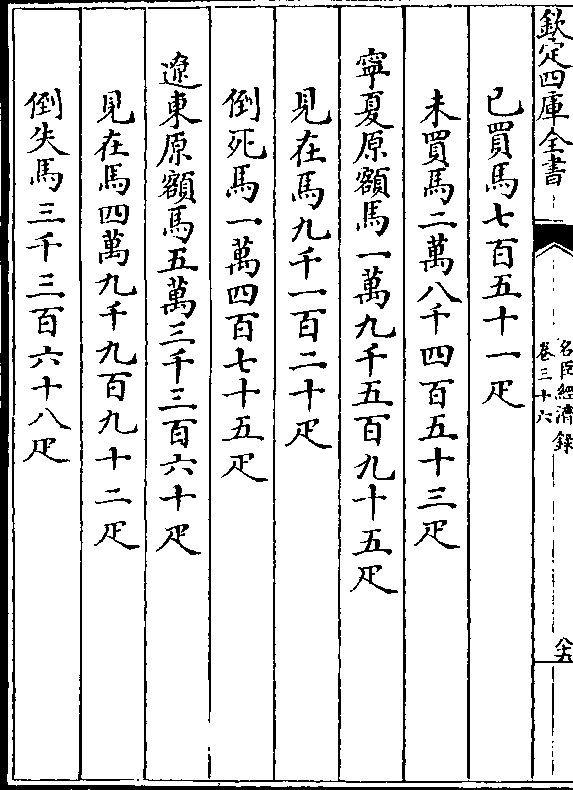 欽定四庫全書
名臣經濟録
卷三十六
六十五
已買馬七百五十一疋
未買馬二萬八千四百五十三疋
寧夏原額馬一萬九千五百九十五疋
見在馬九千一百二十疋
倒死馬一萬四百七十五疋
遼東原額馬五萬三千三百六十疋
見在馬四萬九千九百九十二疋
倒失馬三千三百六十八疋